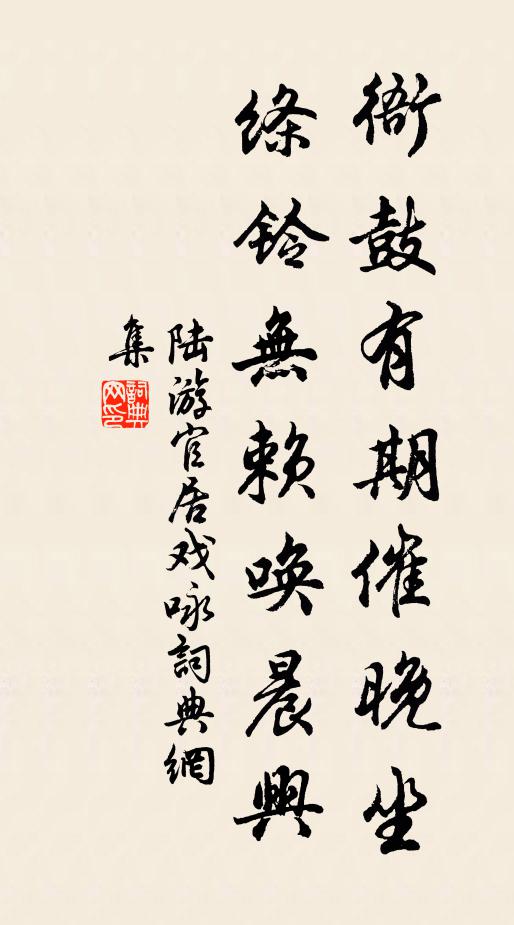 衙鼓有期催晚坐
絛鈴無賴喚晨興
陆游官居戏咏詞典網
集
詞典網印